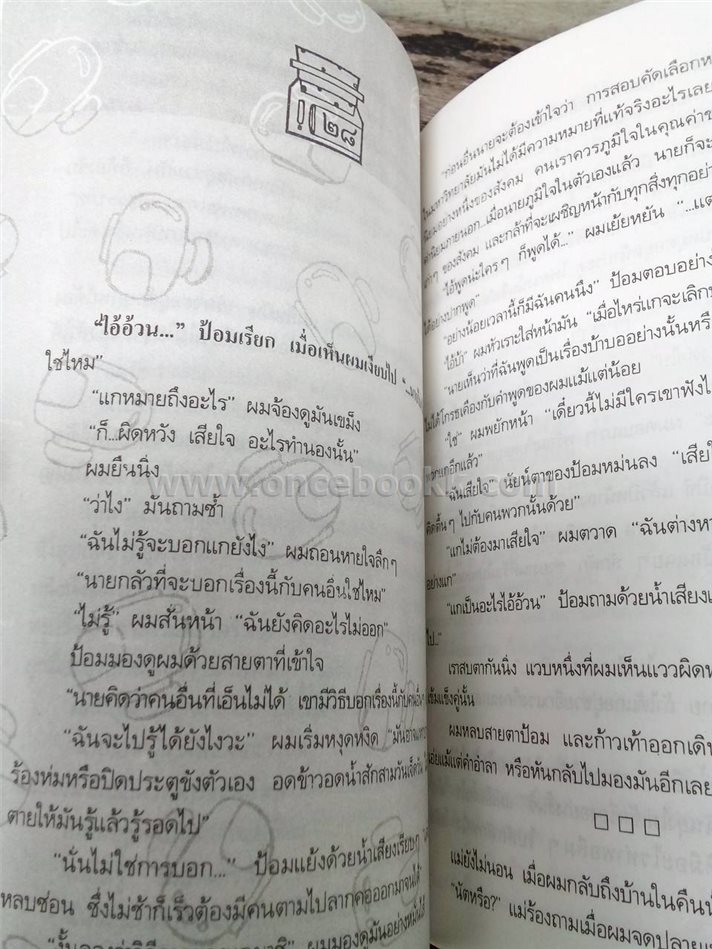 ๒๘
“ไอ้อ้วน...” ป้อมเรียก เมื่อเห็นผมเงียบไป
ใช่ไหม”
“แกหมายถึงอะไร” ผมจ้องดูมันเขม็ง
“ก็...ผิดหวัง เสียใจ อะไรทำนองนั้น”
ผมยืนนิ่ง
“ว่าไง” มันถามซ้ำ
“ฉันไม่รู้จะบอกแกยังไง” ผมถอนหายใจลึกๆ
“นายกลัวที่จะบอกเรื่องนี้กับคนอื่นใช่ไหม”
“ไม่รู้” ผมสั่นหน้า “ฉันยังคิดอะไรไม่ออก”
ป้อมมองดูผมด้วยสายตาที่เข้าใจ
“นายคิดว่าคนอื่นที่เอ็นไม่ได้ เขามีวิธีบอกเรื่องนี้กับคนอื่น
“ฉันจะไปรู้ได้ยังไงวะ” ผมเริ่มหงุดหงิด “มันอาจ
ร้องห่มหรือปิดประตูขังตัวเอง อดข้าวอดน้ำสักสามวันเจ็ดวัน
ตายให้มันรู้แล้วรู้รอดไป”
“นั่นไม่ใช่การบอก...” ป้อมแย้งด้วยน้ำเสียงเรียบๆ
หลบซ่อน ซึ่งไม่ช้าก็เร็วต้องมีคนตามไปลากคอออกมาจนได้”
ผมมองดูมันอย่าง
www.oncebook
“ก่อนอื่นนายจะต้องเข้าใจว่า การสอบคัดเลือก
ในมหาวิทยาลัยมันไม่ได้มีความหมายที่แท้จริงอะไรเลย
นิยมอย่างหนึ่งของสังคม คนเราควรภูมิใจในคุณค่า
ค่านิยมภายนอก...เมื่อนายภูมิใจในตัวเองแล้ว นายก็จะ
ของสังคม และกล้าที่จะเผชิญหน้ากับทุกสิ่งทุกอย่าง
“ไอ้พูดน่ะใครๆ ก็พูดได้...” ผมเย้ยหยัน “...แต่
ได้อย่างปากพูด”
“อย่างน้อยเวลานี้ก็มีฉันคนนึง” ป้อมตอบอย่าง
“ไอ้บ้า” ผมหัวเราะใส่หน้ามัน “เมื่อไหร่แกจะเลิก
“นายเห็นว่าที่ฉันพูดเป็นเรื่องบ้าบออย่างนั้นหรือ
ไม่ได้โกรธเคืองกับคำพูดของผมแม้แต่น้อย
“ใช่” ผมพยักหน้า “เดี๋ยวนี้ไม่มีใครเขาฟัง
แกอีกแล้ว”
“ฉันเสียใจ” นัยน์ตาของป้อมหม่นลง “เสียใจ
คิดตื้นๆ ไปกับคนพวกนั้นด้วย”
“แกไม่ต้องมาเสียใจ” ผมตวาด “ฉันต่างหาก
อย่างแก”
“แกเป็นอะไรไอ้อ้วน” ป้อมถามด้วยน้ำเสียง
ไป...”
เราสบตากันนิ่ง แวบหนึ่งที่ผมเห็นแววผิด
เข้มแข็งคู่นั้น
ผมหลบสายตาป้อม และก้าวเท้าออกเดิน
แม้แต่คำอำลา หรือหันกลับไปมองมันอีกเลย
□ □ □
แม่ยังไม่นอน เมื่อผมกลับถึงบ้านในคืน
“นัตหรือ?” แม่ร้องถามเมื่อผมจอด